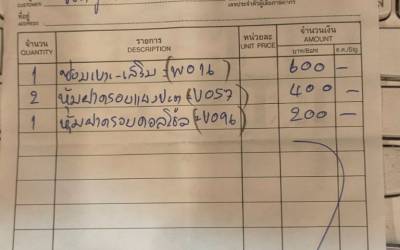 CUSTOMER
เลขประจำตัวผู้เสียภาษีอากร
ที่อยู่
ADDRESS
จำนวน รายการ หน่วยละ จำนวนเงิน
QUANTITY DESCRIPTION UNIT PRICE AMOUNT
บาท/Baht ส.ต./Stg.
1 ซ่อมเบาะ-เสริม (W016) 600 -
2 หุ้มฝาครอบแผงประตู (V057) 400 -
1 หุ้มฝาครอบคอลโซล (V096) 200 -